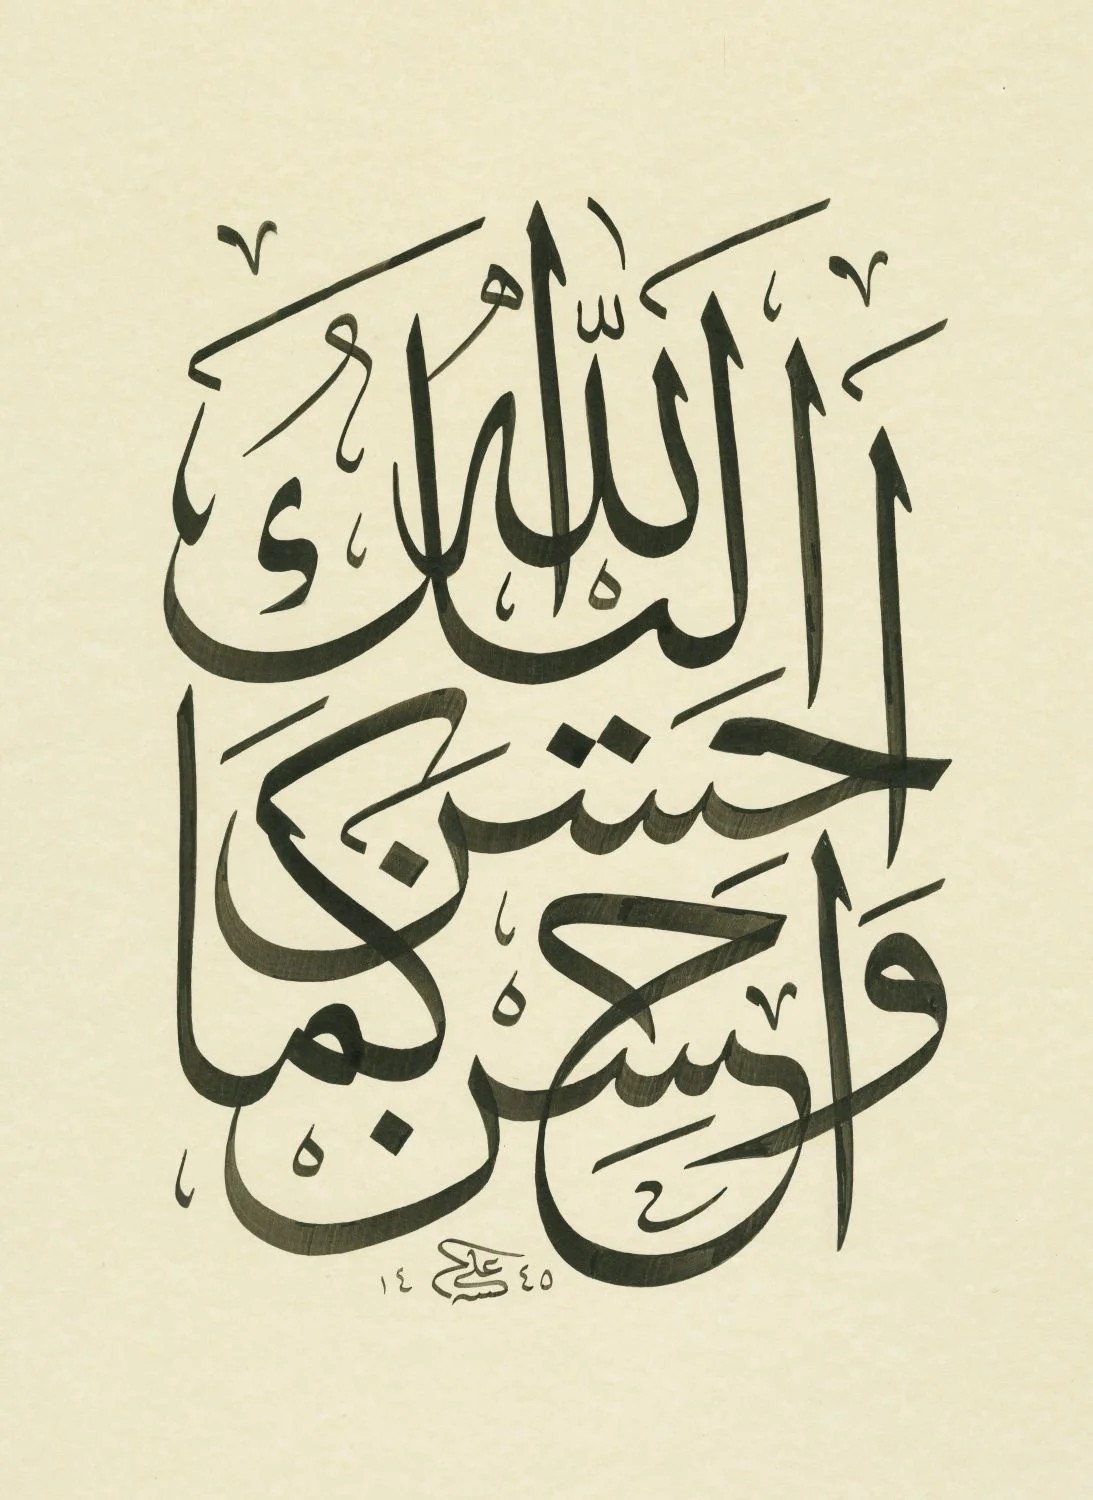 وَاَحْسِنْ كَمَا
اَحْسَنَ
اللّٰهُ اِلَيْكَ
علي ١٤٤٥